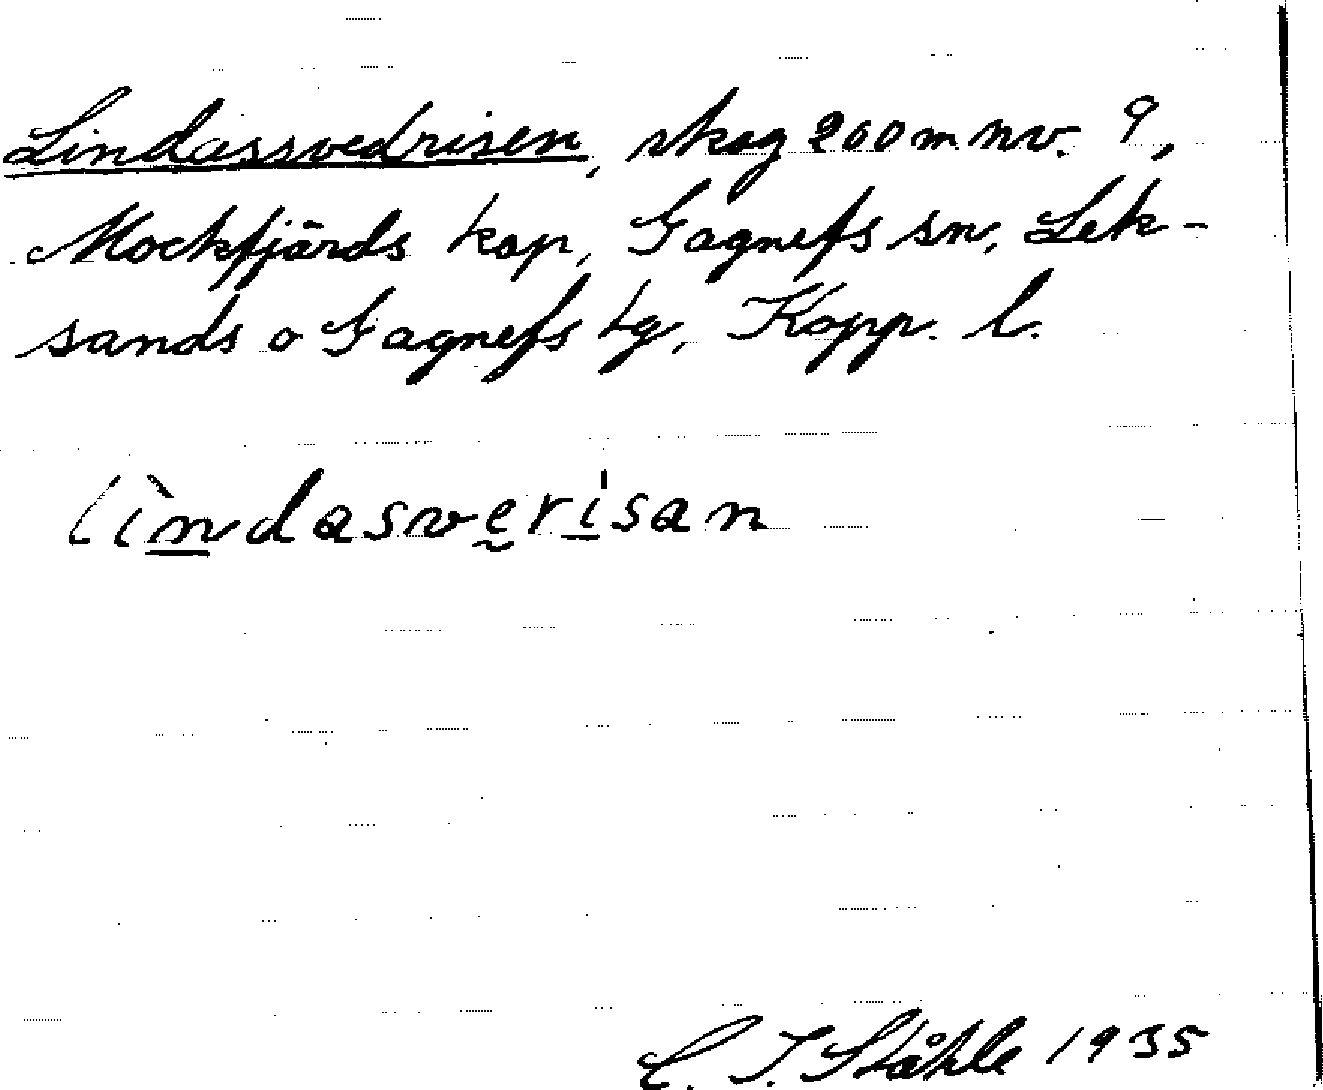 Lindassvedrisen, skog 200 m nv. 9,
Mockfjärds kap, Gagnefs sn, Lek-
sands o Gagnefs tg, Kopp. l.
lìndasverisan
C. I. Ståhle 1935